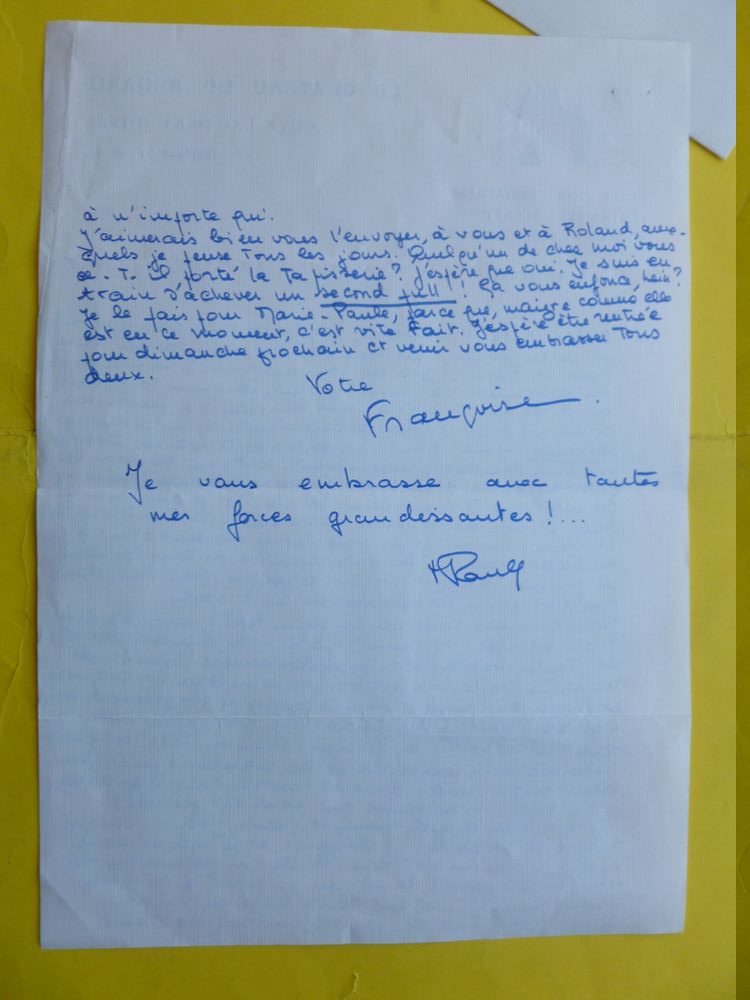 à n'importe qui.
J'aimerais bien vous l'envoyer, à vous et à Roland, aux-
quels je pense Tous les jours. Quelqu'un de chez moi vous
a-T-il porté la Tapisserie? J'espère que oui. Je suis en
train d'achever un second pull! Ça vous enfonce, hein?
Je le fais pour Marie-Paule, parce que, maigre comme elle
est en ce moment, c'est vite fait. J'espère être rentrée
pour dimanche prochain et venir vous embrasser Tous
deux.
Votre
Françoise.
Je vous embrasse avec toutes
mes forces grandissantes!...
MPaule
LE CHATEAU DU REGARD